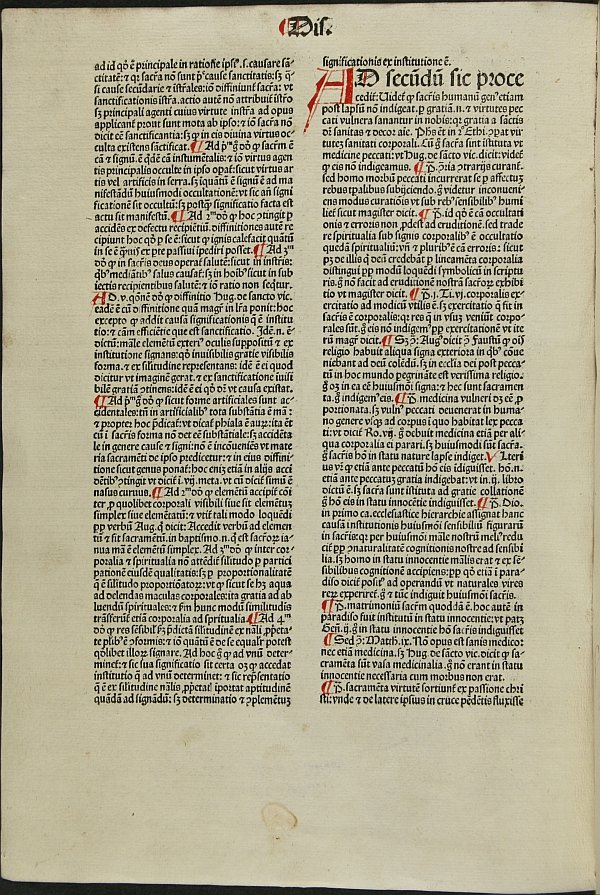 Dis.
ad id qđ ē principale in ratione ipsi᷒.s.causare sā-
ctitatē: ⁊ qꝛ sacr̄a nō sunt pͥ᷒ cause sanctitatis: sꝫ q̄-
si cause secūdarie ⁊ īstr̄ales: iō diffiniunt̄ sacr̄a: vt
sanctificationis īstr̄a.actio autē nō attribuit̄ īstr̄o
sꝫ principali agenti cuius virtute instr̄a ad opus
applicant̄ prout sunt mota ab ipso: ⁊ iō sacr̄a nō
dicit̄ eē sanctificantia: sꝫ ꝙ in eis diuina virtus oc-
culta existens sāctificat. ¶ Ad pͫ g̊ dđ ꝙ sacr̄m ē
cā ⁊ signū. ē qdē cā instumētalis: ⁊ iō virtus agen-
tis principalis occulte in ipso opat̄: sicut virtus ar-
tis vel artificis in serra. sꝫ iquātū ē signū ē ad ma
nifestādū huiusmodi occultationē: vt sic an signi
ficationē sit occultū: sꝫ postꝙ̄ significatio facta est
actu sit manifestū. ¶ Ad 2ͫ dđ ꝙ hoc ꝯtingit ꝑ
accidēs ex defectu recipiētiū. diffinitiones autē re
cipiunt hoc qđ ꝑ se ē: sicut ꝙ ignis calefacit quātū
in se ē quīs ex pte passiui ipediri posset. ¶ Ad 3ͫ
dđ ꝙ in sacris deus operat̄ salutē: sicut in instr̄is:
qͥbꝰ mediātibꝰ salus causat̄: sꝫ in hoibꝰ sicut in sub
iectis recipientibus salutē: ⁊ iō ratio non seqtur.
AD .v. qōnē dđ ꝙ diffinitio Hug. de sancto vic.
eadē ē cū diffinitione quā magr̄ in lr̄a ponit: hoc
excepto ꝙ addit causā significationis q̄ ē institu
tio: ⁊ cām efficiētie que est sanctificatio. Idē.n. ē-
dictū: māle elemētū exteriꝰ oculis suppositū ⁊ ex
institutione signans: qđ īuisibilis gratie visibilis
forma. ⁊ ex similitudine representans: idē ē ei quod
dicitur vt imaginē gerat. ⁊ ex sanctificatione īuisi
bilē gratiā ꝯtinens: idē ē ei qđ dđ vt causa existat.
¶ Ad pͫ g̊ dđ ꝙ licet forme artificiales sunt ac-
cidentales: tn̄ in artificialibꝰ tota substātia ē mā:
⁊ propter hoc p̄dicat̄: vt dicat̄ phiala ē auꝝ: ita et-
iā i sacris forma nō det eē substātiale: sꝫ accidēta
le in genere cause ⁊ signi: nō ē incōueniēs vt mate
ria sacramēti de ipso predicetur: ⁊ in eius diffini
tione sicut genus ponat̄: hoc eniꝫ etiā in alijs acci
dētibꝰ ꝯtingit vt dicit̄ i.vij.meta.vt cū dicit̄ simū ē
nasus curuus. ¶ Ad 2ͫ dđ ꝙ elemētū accipit̄ cōi
ter ꝓ quolibet corporali visibili siue sit elemētuꝫ
simplex siue elemētatū: ⁊ vtit̄ tali modo loquēdi
ꝓꝑ verbū Aug.q̄ dicit: Accedit verbū ad elemen
tū ⁊ sit sacramētū.in baptismo.n. q̄ est sacroꝝ ia-
nua mā ē elemētū simplex. Ad 3ͫ dđ ꝙ inter cor-
poralia ⁊ spiritualia nō attēdit̄ silitudo ꝑ partici
pationē eiusdē qualitatis: sꝫ ꝓ proportionalitatē
q̄ ē silitudo proportionatoꝝ: vt ꝙ sicut se hꝫ aqua
ad delendas maculas corporales: ita gratia ad ab
luendū spirituales: ⁊ scđm hunc modū similitudīs
trāsferūt̄ etiā corporalia ad spiritualia. ¶ Ad 4ͫ
dđ ꝙ res sensibilꝭ sꝫ p̄dictā silitudinē ex nāli ꝓpeta-
te pl̄ibꝰ ꝯformis: ⁊ iō quātū ē de se equalr̄ potest
qđlibet illoꝝ signare. Ad hoc g̊ ꝙ ad vnū deter-
minet̄: ⁊ sic sua significatio sit certa oꝫ ꝙ accedat
institutio q̄ ad vnū determinet: ⁊ sic repn̄tatio
q̄ ē ex silitudine nālis ꝓpetatꝭ īportat aptitudinē
quādā ad signādū: sꝫ determinatio ⁊ ꝯplemētuꝫ
significationis ex institutione ē.
AD secūdū sic proce
cedit̄: Videt̄ ꝙ sacris humanū genꝰ etiam
post lapsū nō indigeat.p gratiā.n. ⁊ virtutes pec
cati vulnera sanantur in nobis: qꝛ gratia a sāctis
dr̄ sanitas ⁊ decor aīe. Phs ēt in 2ͦ Ethi.ꝯpat vir
tuteꝫ sanitati corporali. Cū g̊ sacr̄a sint istituta vt
medicine peccati: vt Hug.de sācto vic.dicit: videt̄
ꝙ eis nō indigeamus. ¶ P. ꝯtraria ꝯtrarijs curant̄.
sed homo morbū peccati incurrerat se p affectuꝫ
rebus tpalibus subijciendo. g̊ videtur inconueni
ens modus curatiōis vt sub rebꝰ sensibilibꝰ humi
lief sicut magister dicit. ¶ P. id qđ ē cā occultati
onis ⁊ erroris non ꝓdest ad eruditionē. sed trade
re spiritualia sub signis corporalibꝰ ē occultatio
quedā spiritualiū: ⁊ pluribꝰ ē cā erroris: sicut
pꝫ de illis q̄ deū credebāt ꝑ lineamēta corporalia
distingui ꝓp modū loquēdi symbolicū in scriptu
ris. g̊ nō facit ad eruditionē nostrā sacroꝝ exhibi
tio vt magister dicit. ¶ P. j. Ti.vj. corporalis ex-
ercitatio ad modicū vtilis ē. sꝫ exercitatio q̄ fit in
sacris ē corporalis: qꝛ res q̄ in vsuꝫ veniūt corpo-
rales sūt. g̊ eis nō indigemꝰ ꝓp exercitationē vt ite
rū magr̄ dicit. ¶ Sꝫ ꝯ: Augꝰ dicit ꝯ Faustū ꝙ oīs
religio habuit aliqua signa exteriora in qͥbꝰ cōue
niebant ad deū colēdū. sꝫ in ecclia dei post pecca
tū in hoc mundo peregrināte est verissima religio.
g̊ oꝫ in ea eē huiusmōi signa: ⁊ hec sunt sacramen
ta. g̊ indigemꝰ eis. ¶ P. medicina vulneri dꝫ eē ꝓ
portionata. sꝫ vulnꝰ peccati deuenerat in huma-
no genere vsqꝫ ad corpus i quo habitat lex pecca
ti: vt dicit̄ Ro.vij. g̊ debuit medicina etiā per ali-
qua corporalia ei parari. sꝫ huiusmodi sūt sacr̄a.
g̊ sacris hō in statu nature lapse indiget. Ulteri
us vr̄ ꝙ etiā ante peccatū hō eis idiguisset. hō.n.
etiā ante peccatuꝫ gratia indigebat: vt in.ij.libro
dictū ē. sꝫ sacr̄a sunt istituta ad gratie collationē.
g̊ hō eis in statu innocētie indiguisset. ¶ P. Dio.
in primo ca.ecclesiastice hierarchie assignat hanc
causā institutionis huiusmōi sensibiliū figuraꝝ
in sacris: qꝛ per huiusmōi māle nostrū meliꝰ redu
cit̄ ꝓꝑ ꝯnaturalitatē cognitionis nostre ad sensibi
lia. sꝫ homo in statu innocentie mālis erat ⁊ ex sē-
sibilibus cognitionē accipiens: ꝓꝑ qđ etiā i para-
diso dicit̄ positꝰ ad operandū vt naturales vires
reꝝ experiret̄. g̊ ⁊ tūc indiguit huiusmōi sacris.
¶ P. matrimoniū sacr̄m quoddā ē. hoc autē in
paradiso fuit institutū in statu innocentie: vt patꝫ
Gen̄.ij. g̊ in statu innocentie hō sacris indiguisset
¶ Sed ꝯ: Matth.ix. Nō opus est sanis medico:
nec etiā medicina. sꝫ Hug.de sācto vic.dicit ꝙ sa-
cramēta sūt vasa medicinalia. g̊ nō erant in statu
innocentie necessaria cum morbus non erat.
¶ P. sacramēta virtutē sortiunt̄ ex passione chri
sti: vnde ⁊ de latere ipsius in cruce pēdētis fluxisse